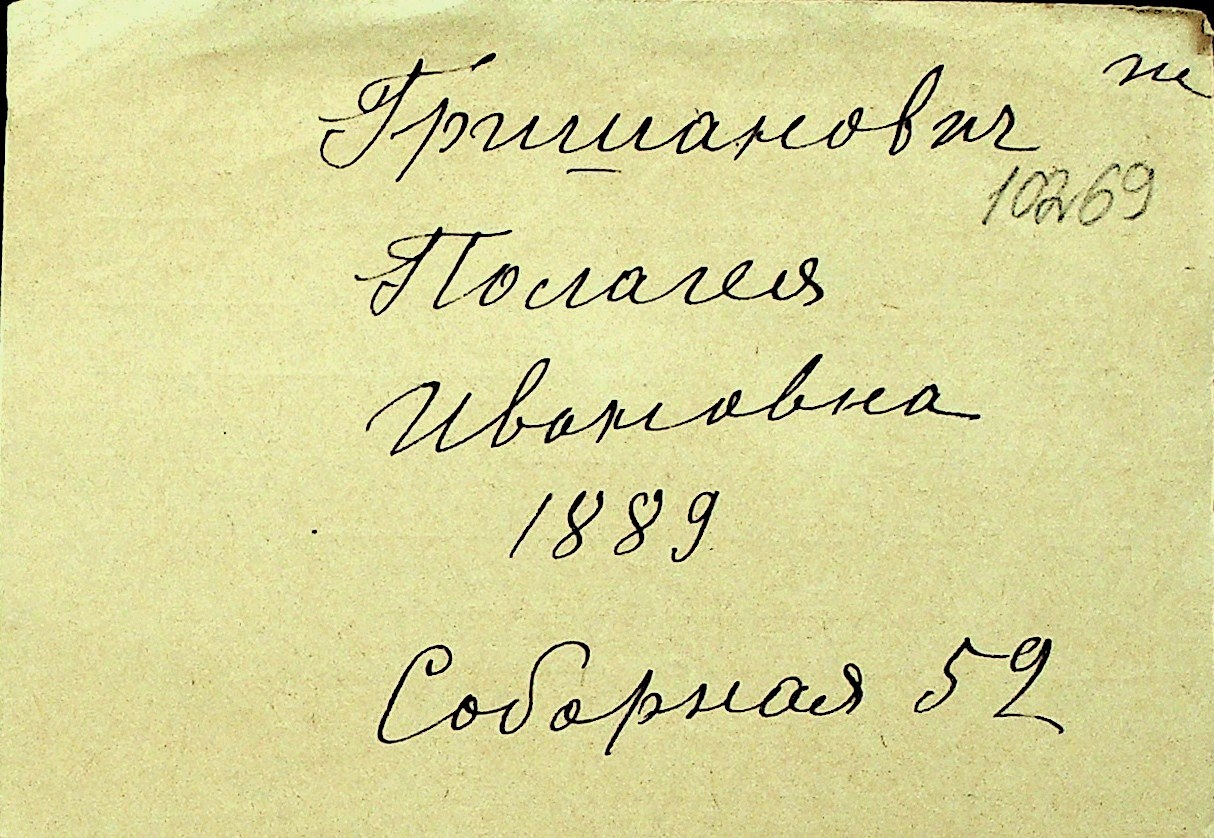 Гришанович
10269
Полагея
Ивановна
1889
Соборная 52